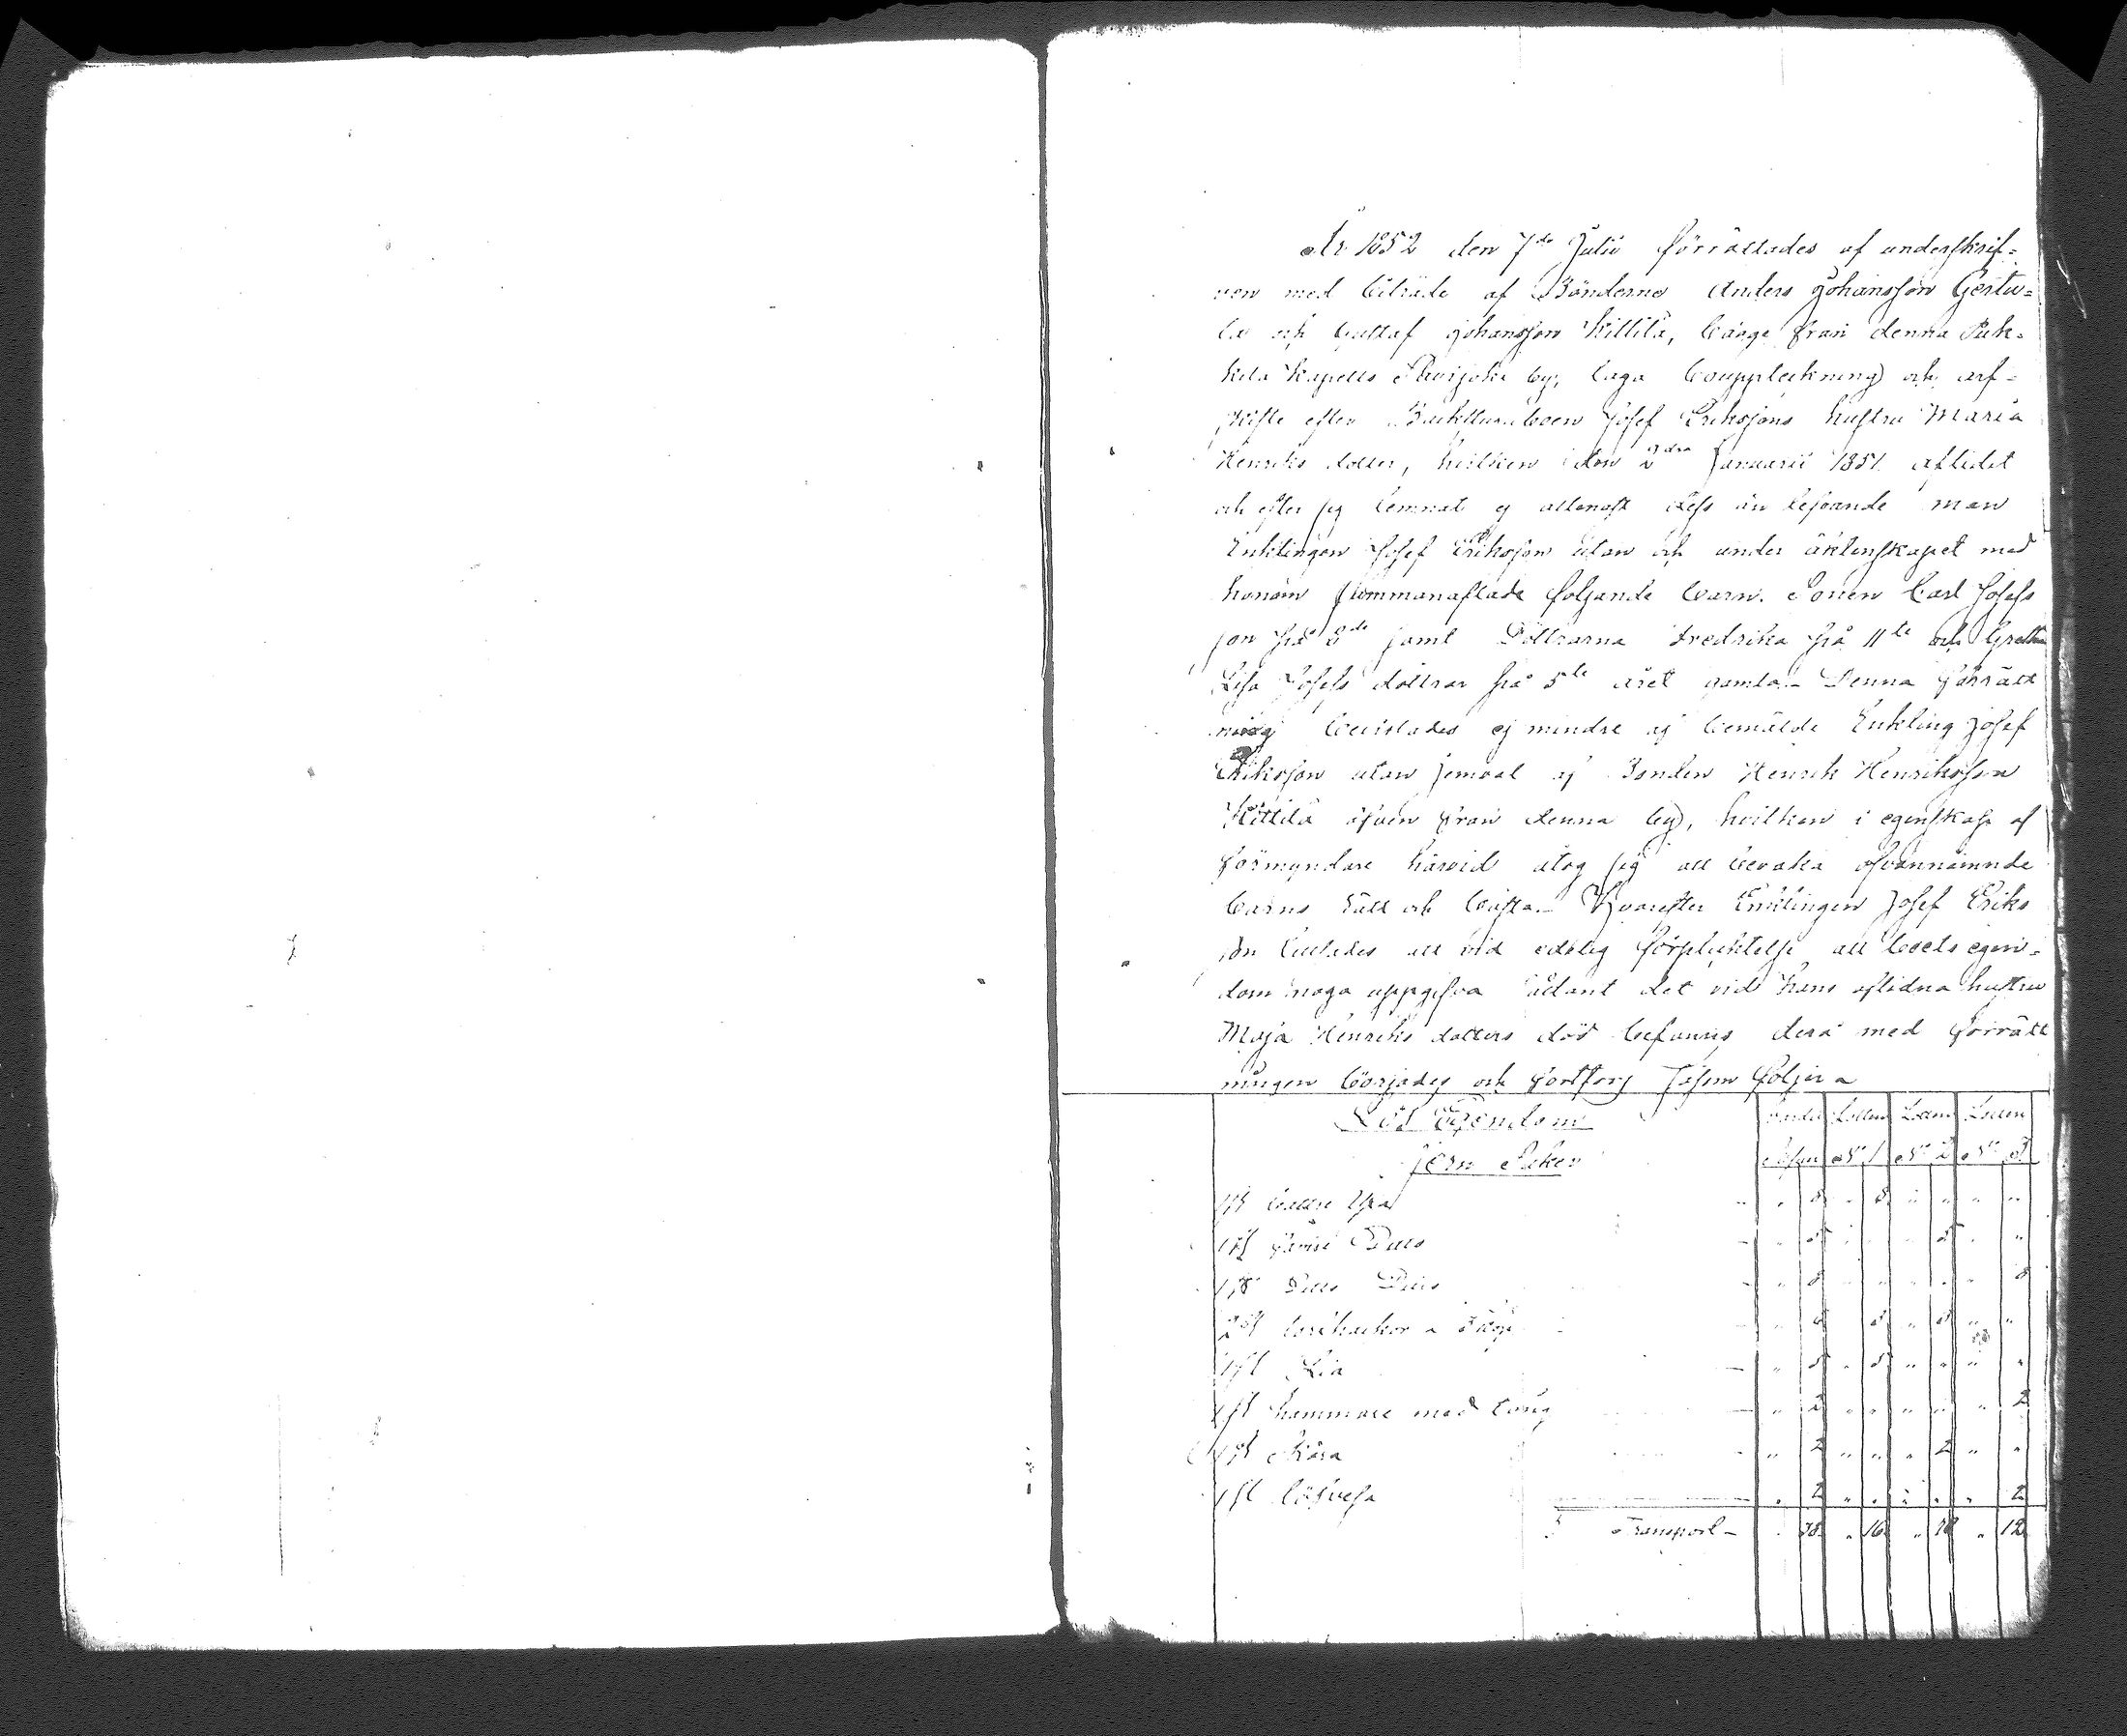 År 1852 den 7de Julii förrättades af underskrif=
ven med biträde af Bönderne Anders Johansson Gertu=
la och Gustaf Johansson Kittilä, bägge från denna Puk=
kila Kapells Savijoki by, laga bouppteckning och arf=
skifte efter Josef Erikssons hustru Maria
Henriks dotter, hvilken den 2dra Januarii 1851 aflidit
och efter sig lemnat ej allenast dess än lefvande man
Enklingen Josef Eriksson utan och under äktenskapet med
honom sammanaflade följande barn. Sonen Carl Josefs
son på samt Döttrarna Fredrika på 11te och Greta
Lisa Josefs döttrar på 5te året gamla. Denna förrätt
ning bevistades ej mindre af bemälde Enkling Josef
Eriksson utan jemväl af Bonden Henrik Henriksson
Kittilä äfven från denna by, hvilken i egenskap af
förmyndare härvid åtog sig att bevaka ofvannämnde
barns rätt och bästa. Hvarefter Enklingen Josef Eriks
son att vid edelig förpliktelse all boets egen=
dom noga uppgifva sådant det vid hans aflidna hustru
Maja Henriks dotters död befanns dera med förrätt
ningen börjades och fortfors såsom följer
Lös Egendom
Jern Saker
Lotten Lotten Lotten
No 1 No 2 No 3
1 st bättre Yxa " 8 " 8 " " " "
1 st sämre Ditto " 8 " " " 8 " "
1 st Ditto Ditto " 8 " " " " " 8
2 st
1 st Lia
1 st hammare med tång " 2 " " " " " 2
1 st Skära " 2 " " " 2 " "
1 st " 2 " " " " " 2
Transport " 38 " 16 " 10 " 12